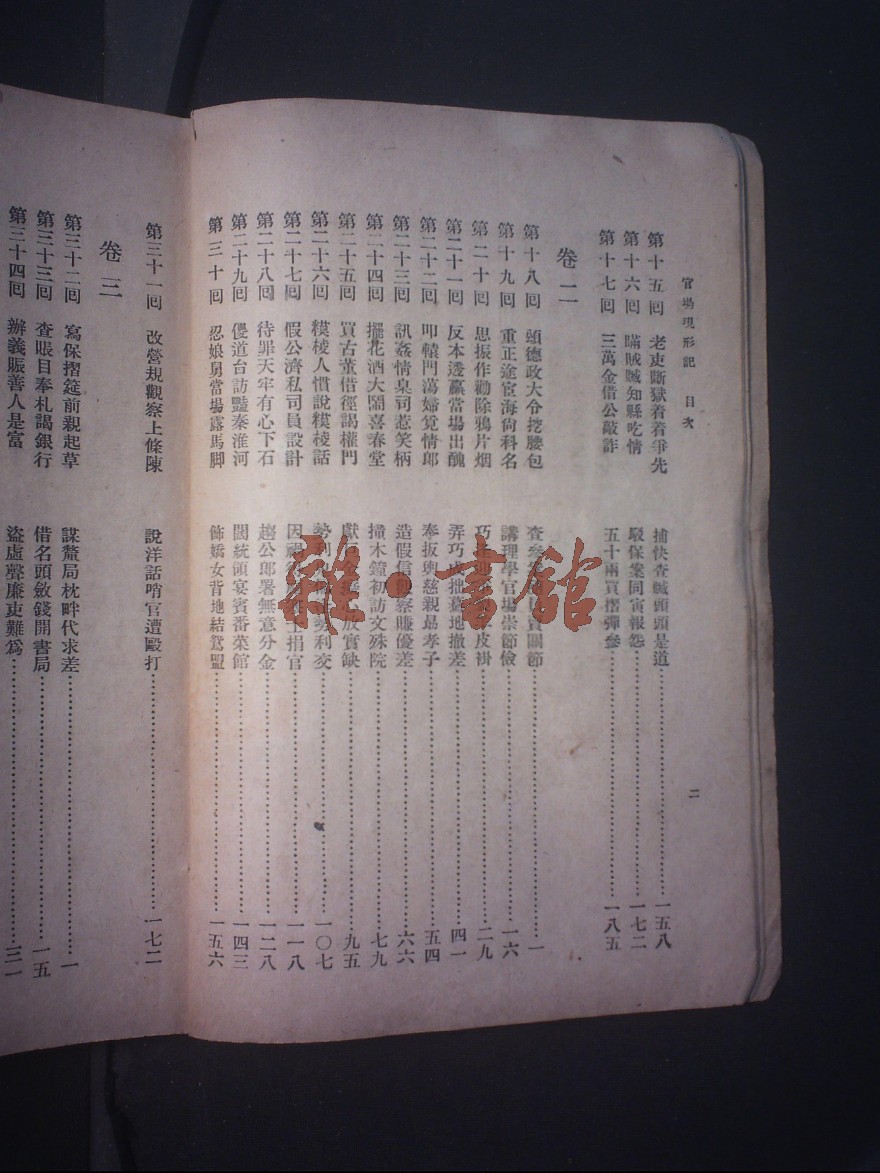 官場現形記 目次
二
第十五回 老吏斷獄着着爭先 捕快查贓頭頭是道 一五八
第十六回 瞞賊贓知縣吃情 駁保案同寅報怨 一七二
第十七回 三萬金借公敲詐 五十兩買摺彈參 一八五
卷二
第十八回 頌德政大令挖腰包 查參案 關節 一
第十九回 重正途宦海尙科名 講理學官場崇節儉 一六
第二十回 思振作勸除鴉片烟 巧 皮褂 二九
第二十一回 反本透贏當場出醜 弄巧成拙蓦地撤差 四一
第二十二回 叩轅門蕩婦覓情郎 奉扳輿慈親勗孝子 五四
第二十三回 訊姦情臬司惹笑柄 造假信 察賺優差 六六
第二十四回 擺花酒大鬧喜春堂 撞木鐘初訪文殊院 七九
第二十五回 買古董借徑謁權門 獻 放實缺 九五
第二十六回 糢棱人慣說糢棱話 勢利 勢利交 一〇七
第二十七回 假公濟私司員設計 因禍 捐官 一一八
第二十八回 待罪天牢有心下石 趨公郎署無意分金 一二八
第二十九回 儍道台訪豔秦淮河 闊統領宴賓番菜館 一四三
第三十回 忍娘舅當場露馬脚 飾嬌女背地結鴛盟 一五六
第三十一回 改營規觀察上條陳 說洋話哨官遭毆打 一七二
卷三
第三十二回 寫保摺筵前親起草 謀釐局枕畔代求差 一
第三十三回 查賬目奉札謁銀行 借名頭斂錢開書局 一五
第三十四回 辦義賑善人是富 盜虛聲廉吏難爲 三一
雜·書館